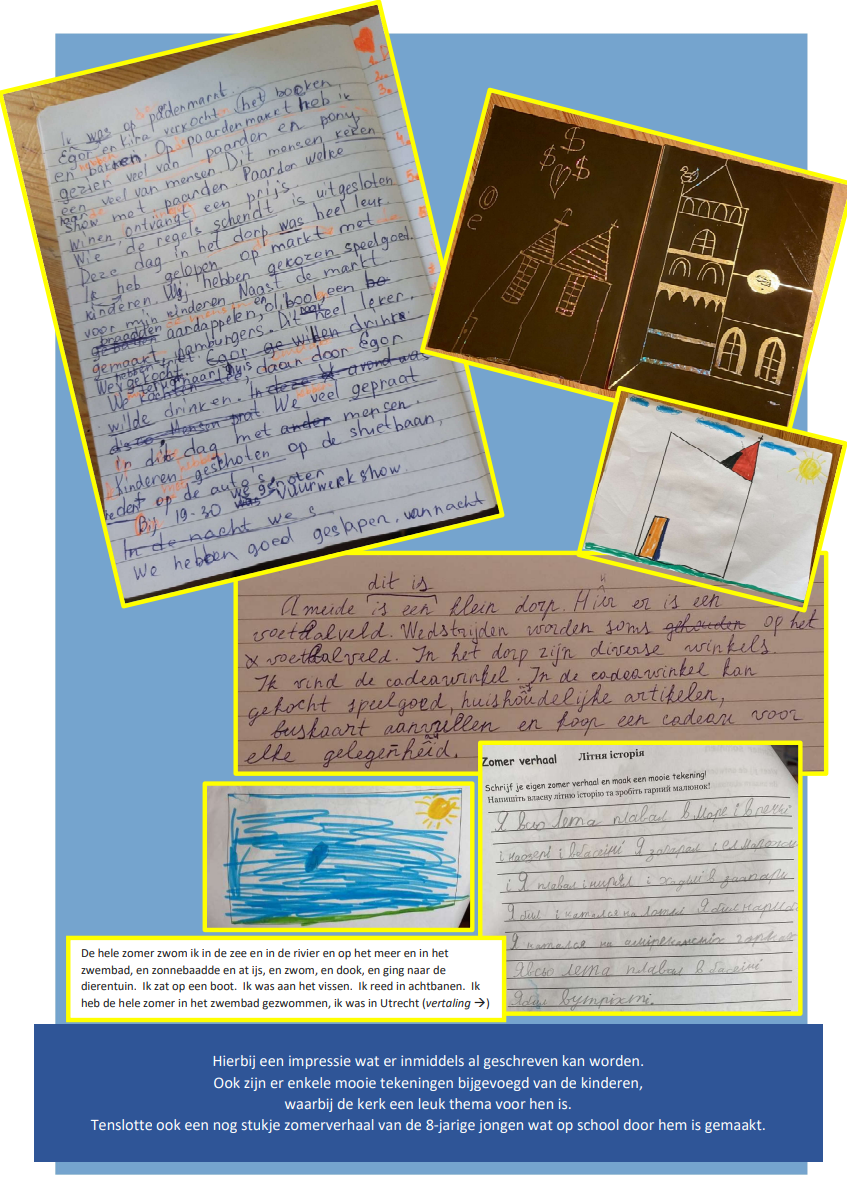 Ik was op padenmarkt.
Egor en Kira verkocht het boeken,
en banken. Op paardenmarkt heb ik
gezien veel van paarden en pony,
een veel van mensen. Dit mensen keken
show met paarden. Paarden welke
winen, ontvangt een prijs.
Wie de regels schendt is uitgesloten
Deze dag in het dorp was heel leur.
Ik heb gelopen op markt met
kinderen. Wij hebben gekozen speelgoed
voor mijn kinderen Naast de markt
aardappelen, bool, een
gemaakt, hamburgers. Dit heel leker.
We gekocht. Egor drinke
We huis, daarn door Egor
wilde drinken. In deze avond was
We veel gepraat
in die dag met ander mensen.
Kinderen geschoten op de shietbaan,
op de auto's
19-30 we genoten vuurwerkshow.
In de nacht we s
We hebben goed geslapen, vannacht
$
$ $
dit is
Ameide is een klein dorp. Hier er is een
voetbalveld. Wedstrijden worden soms gehouden op het
voetbalveld. In het dorp zijn diverse winkels.
Ik vind de cadeawinkel. In de cadeawinkel kan
gekocht speelgoed, huishoudelijke artikelen,
buskaart aanvullen en koop een cadeau voor
elke gelegenheid.
Zomer verhaal Літня історія
Schrijf je eigen zomer verhaal en maak een mooie tekening!
Напишіть власну літню історію та зробіть гарний малюнок!
Я всьо лета плавал в море і в речкі
і наозері і в басеіні Я загарал і ел
і Я плавал і нирял і хаділ в заапарк
Я бил і катался на лоткі Я бил на
Я катался на амріканскіх горках
Я всьо лета плавал в басеіні
Я бил вутріхті.
De hele zomer zwom ik in de zee en in de rivier en op het meer en in het
zwembad, en zonnebaadde en at ijs, en zwom, en dook, en ging naar de
dierentuin. Ik zat op een boot. Ik was aan het vissen. Ik reed in achtbanen. Ik
heb de hele zomer in het zwembad gezwommen, ik was in Utrecht (vertaling →)
Hierbij een impressie wat er inmiddels al geschreven kan worden.
Ook zijn er enkele mooie tekeningen bijgevoegd van de kinderen,
waarbij de kerk een leuk thema voor hen is.
Tenslotte ook een nog stukje zomerverhaal van de 8-jarige jongen wat op school door hem is gemaakt.